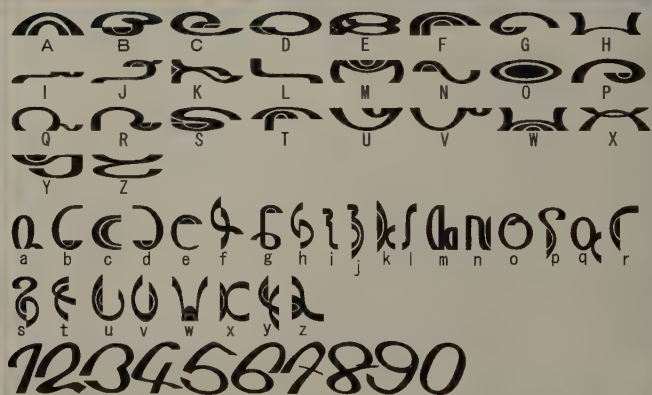 A B C D E F G H
I J K L M N O P
Q R S T U V W X
Y Z
a b c d e f g h i j k l m n o p q r
s t u v w x y z
1234567890